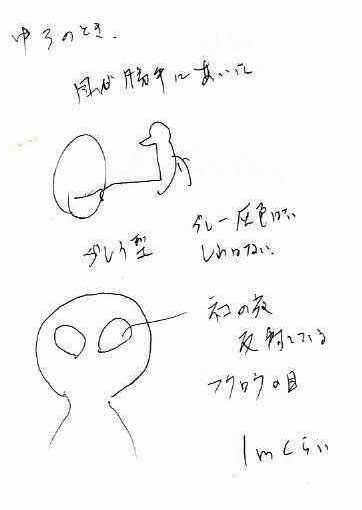 中3のとき.
窓が勝手にあいた
グレイ型
グレー 灰色
しわはない
ネコの夜
反射している
フクロウの目
1mくらい